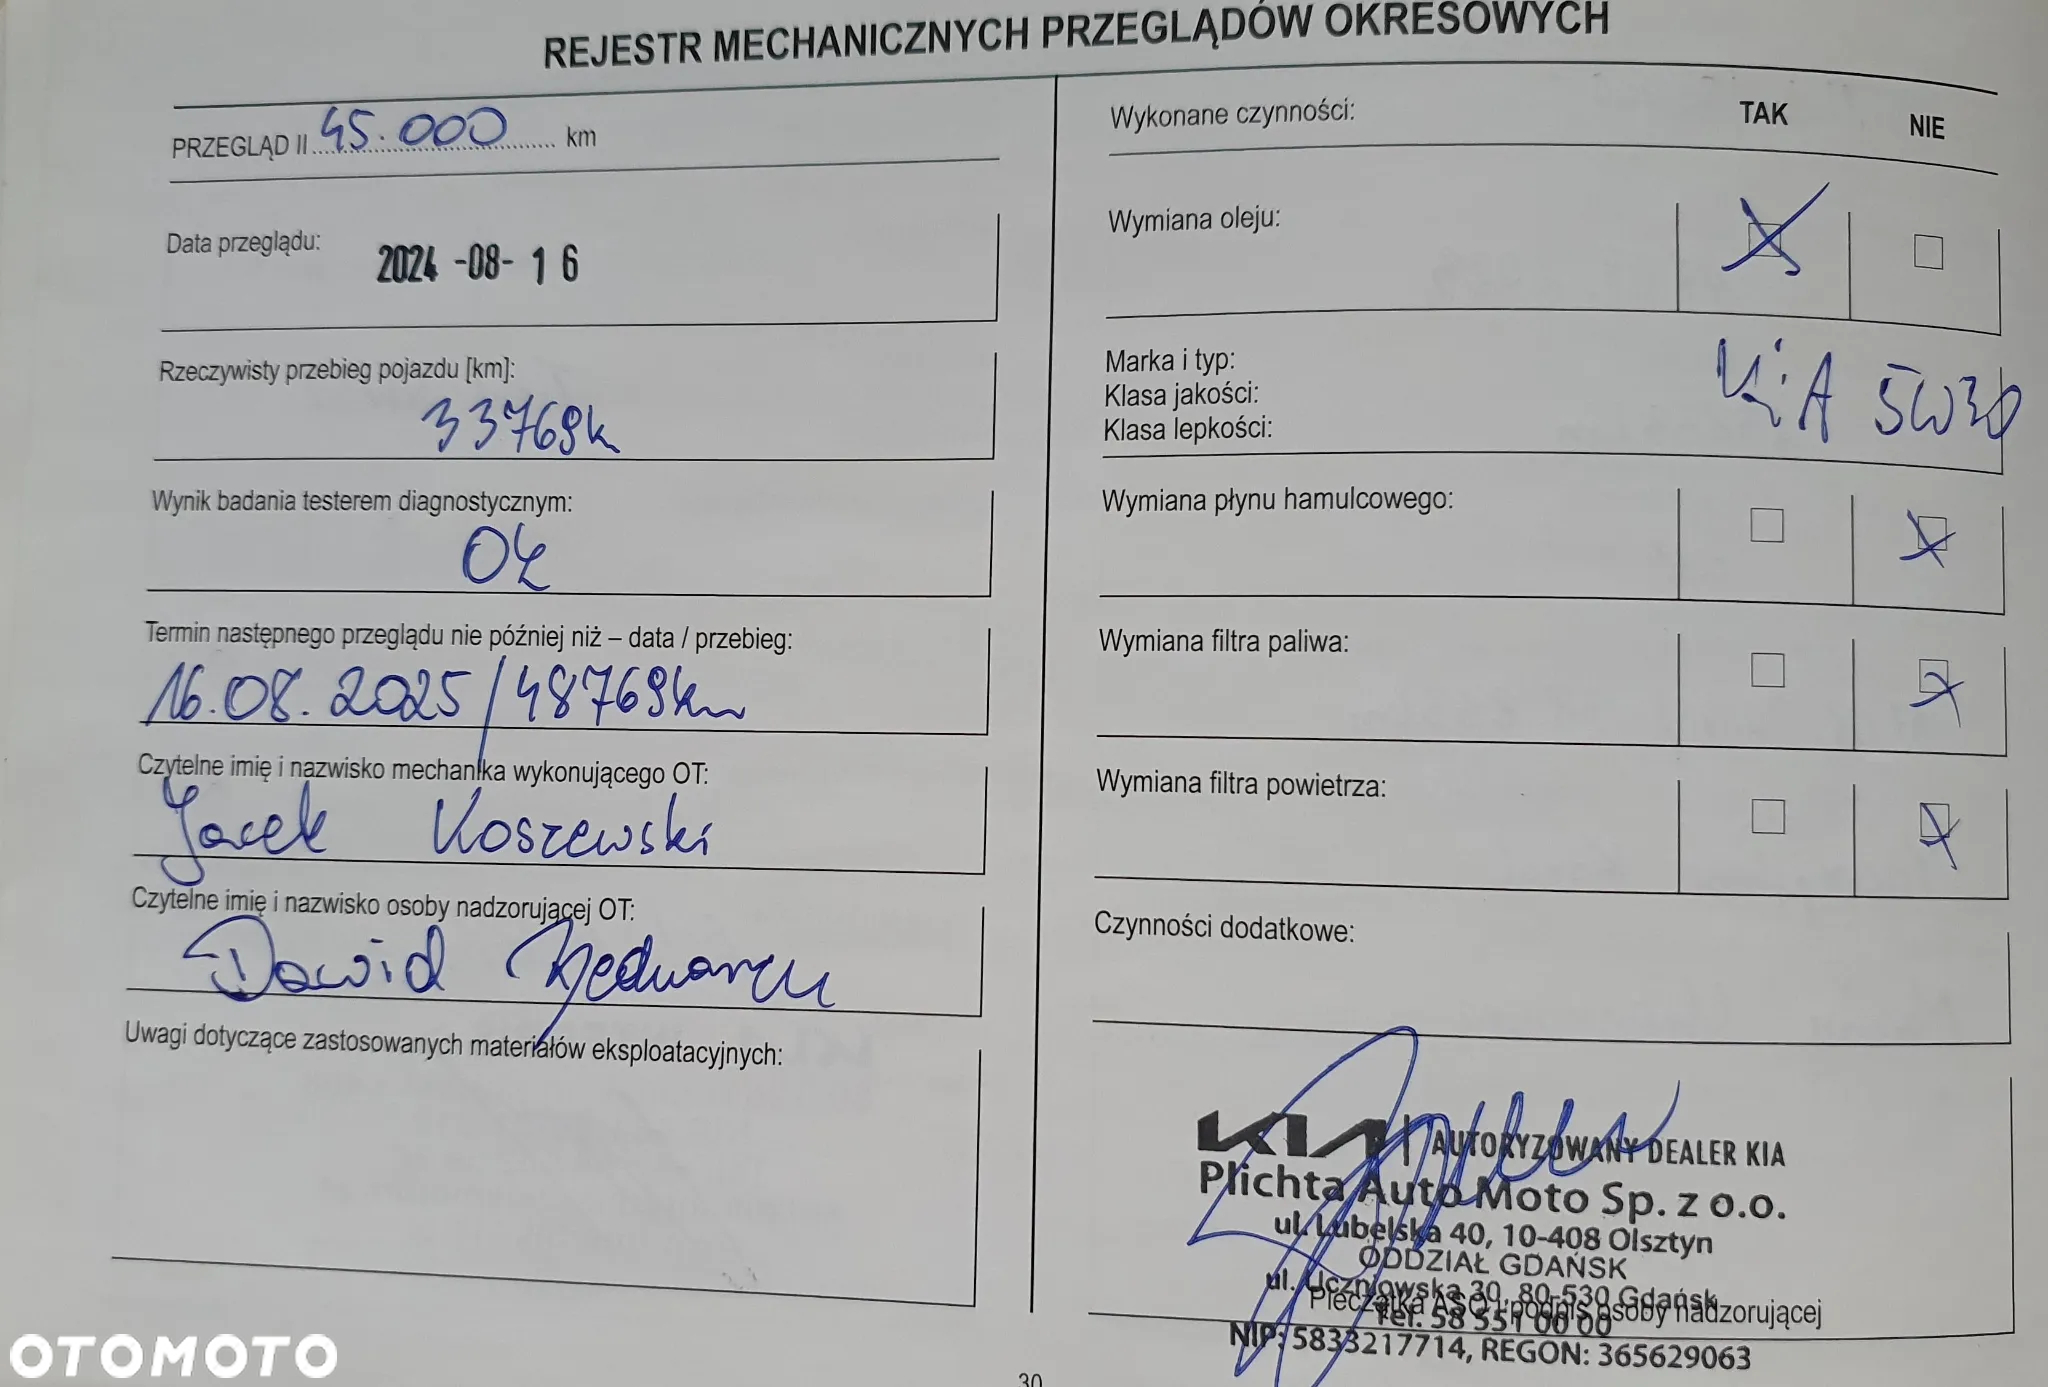 REJESTR MECHANICZNYCH PRZEGLĄDÓW OKRESOWYCH
PRZEGLĄD II 45.000 km
Data przeglądu:
2024 -08- 16
Rzeczywisty przebieg pojazdu [km]:
33769k
Wynik badania testerem diagnostycznym:
OK
Termin następnego przeglądu nie później niż – data / przebieg:
16.08.2025/48769km
Czytelne imię i nazwisko mechanika wykonującego OT:
Jacek Koszewski
Czytelne imię i nazwisko osoby nadzorującej OT:
Dawid
Uwagi dotyczące zastosowanych materiałów eksploatacyjnych:
Wykonane czynności: TAK NIE
Wymiana oleju:
Marka i typ:
Klasa jakości:
Klasa lepkości:
KIA 5W30
Wymiana płynu hamulcowego:
Wymiana filtra paliwa:
Wymiana filtra powietrza:
Czynności dodatkowe:
KIA | AUTORYZOWANY DEALER KIA
Plichta Auto Moto Sp. z o.o.
ul. Lubelska 40, 10-408 Olsztyn
ODDZIAŁ GDAŃSK
ul. Uczniowska 30, 80-530 Gdańsk
Pieczątka ASO i podpis osoby nadzorującej
Tel. 58 551 00 00
NIP: 5833217714, REGON: 365629063
30
OTOMOTO